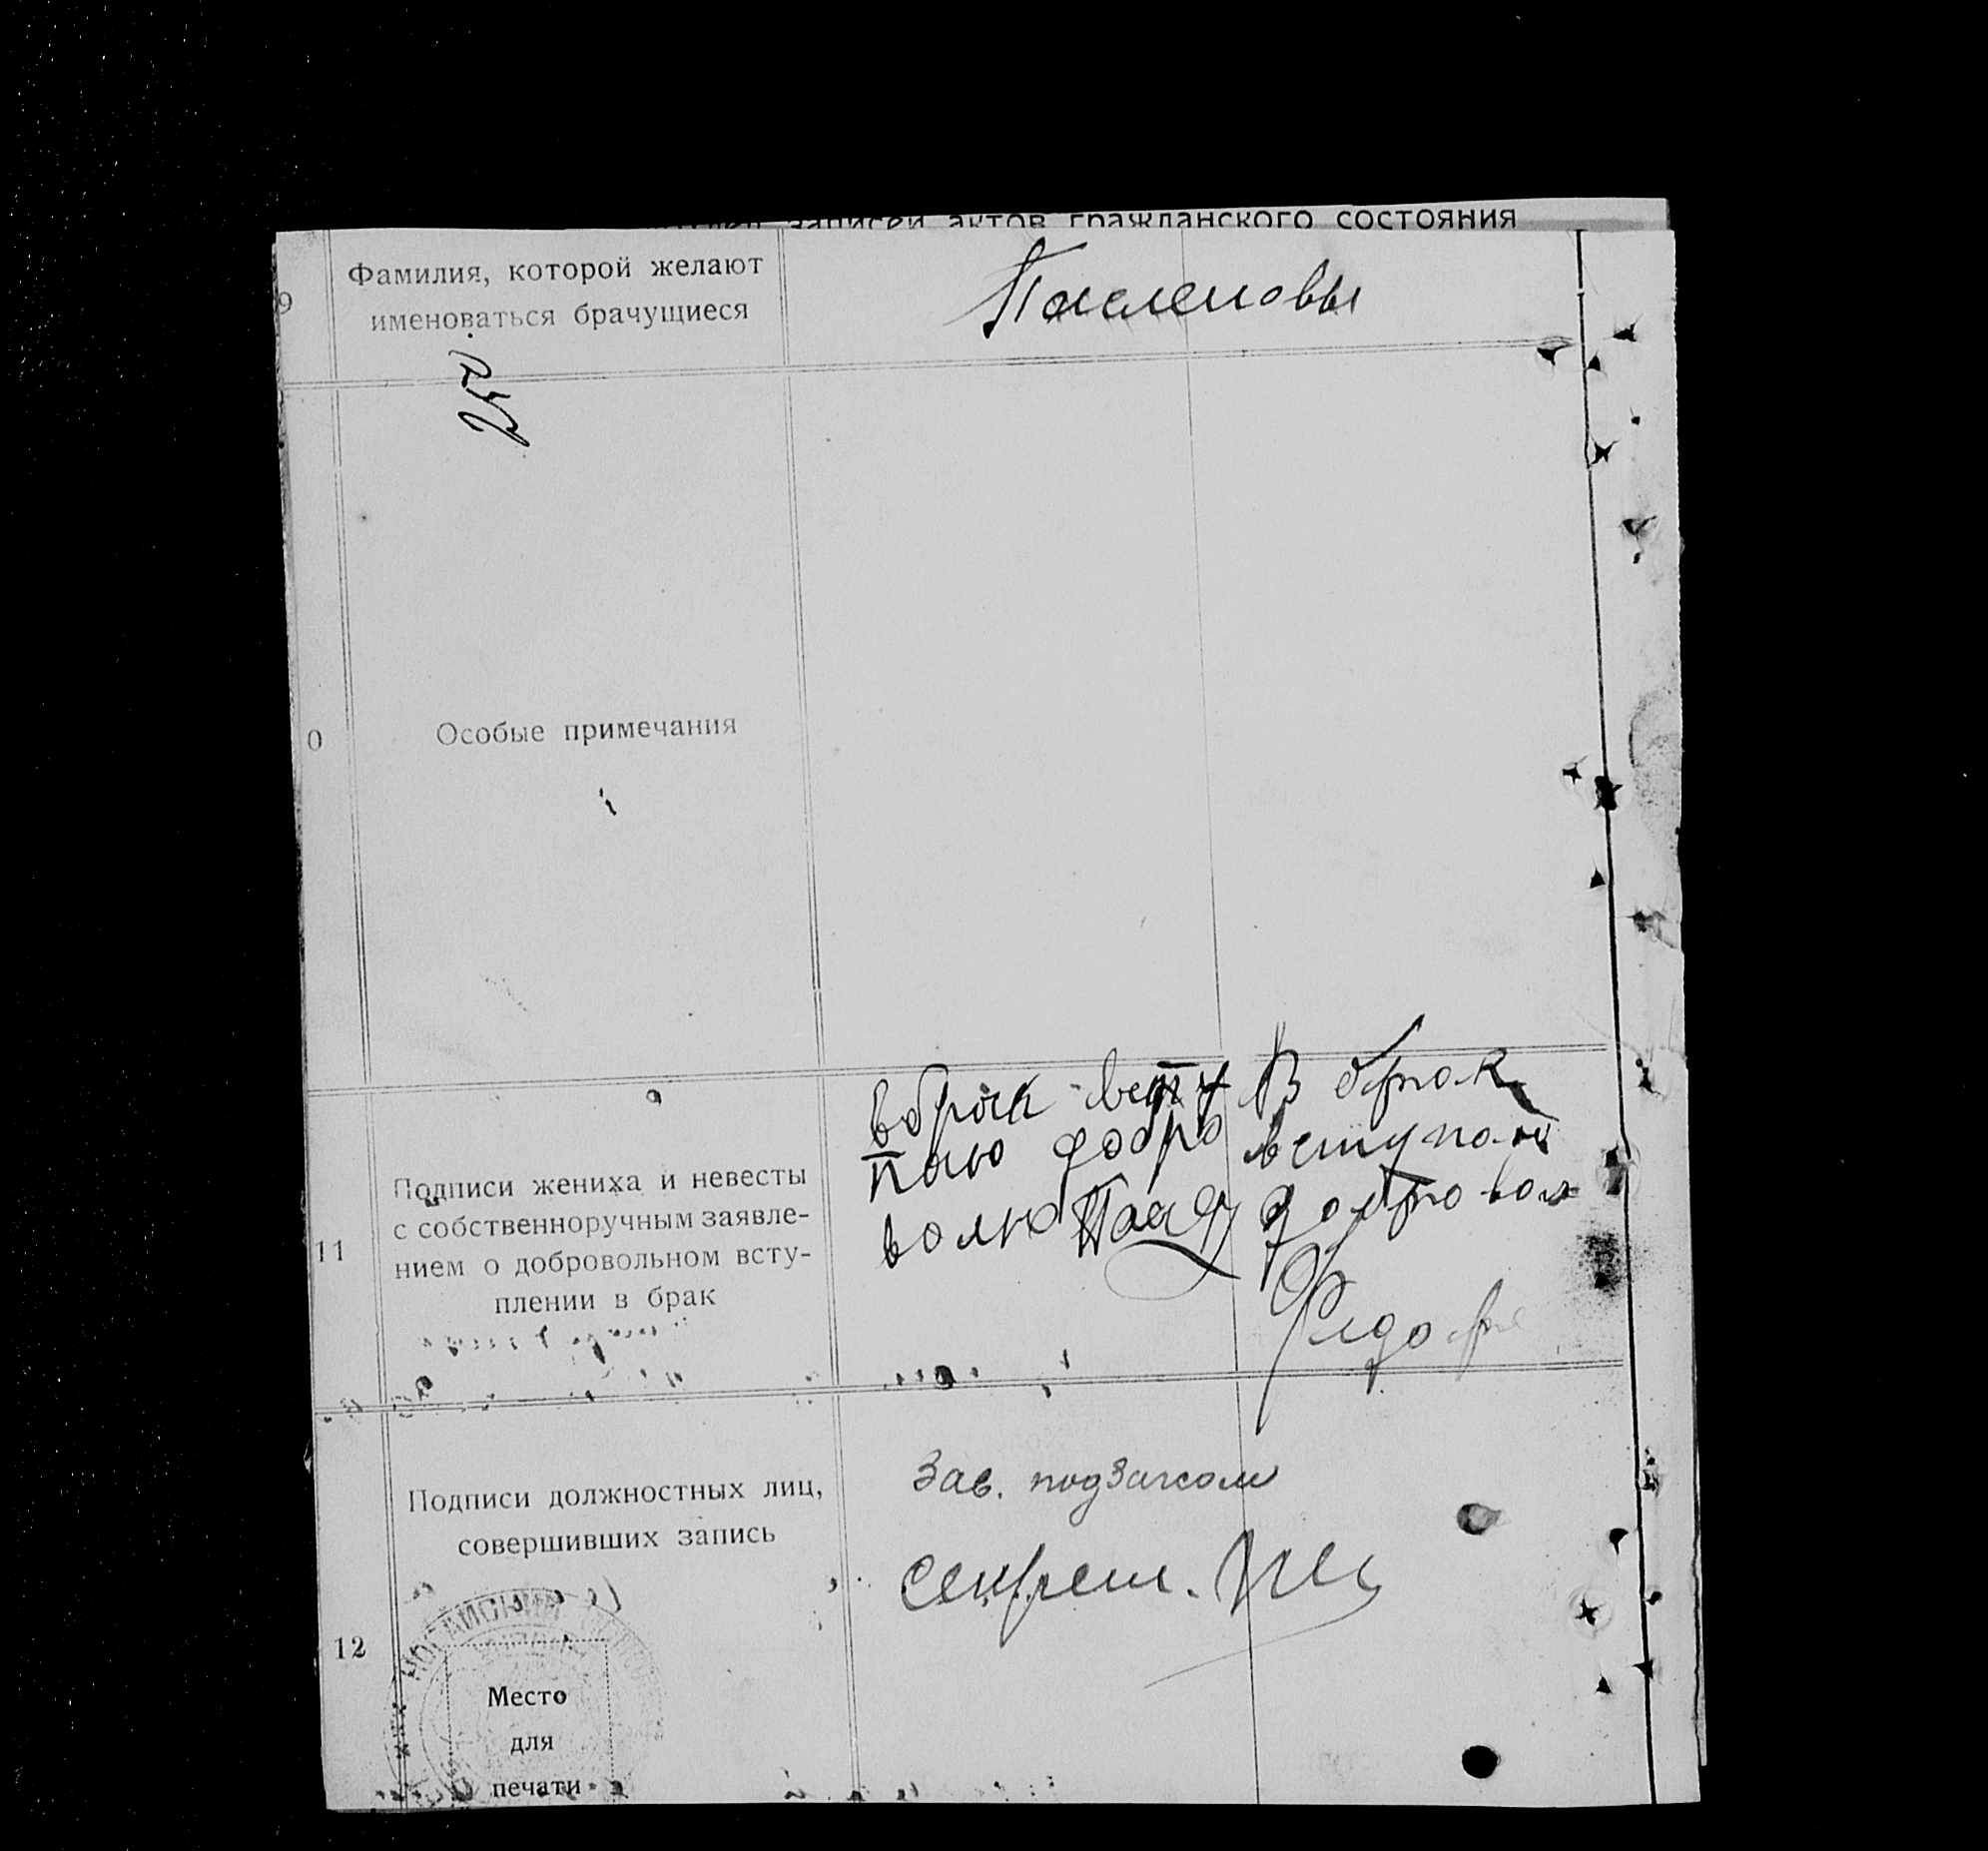 записей актов гражданского состояния
9
Фамилия, которой желают
именоваться брачущиеся
Пасленовы
0
Особые примечания
11
Подписи жениха и невесты
с собственноручным заявле-
нием о добровольном всту-
плении в брак
вбрак всту
паю добро
волно
В брак
вступаю
добровол
Федор
12
Подписи должностных лиц,
совершивших запись
Зав. подзагсом
Секрет.
НОГАЙСКИЙ
Место
для
печати